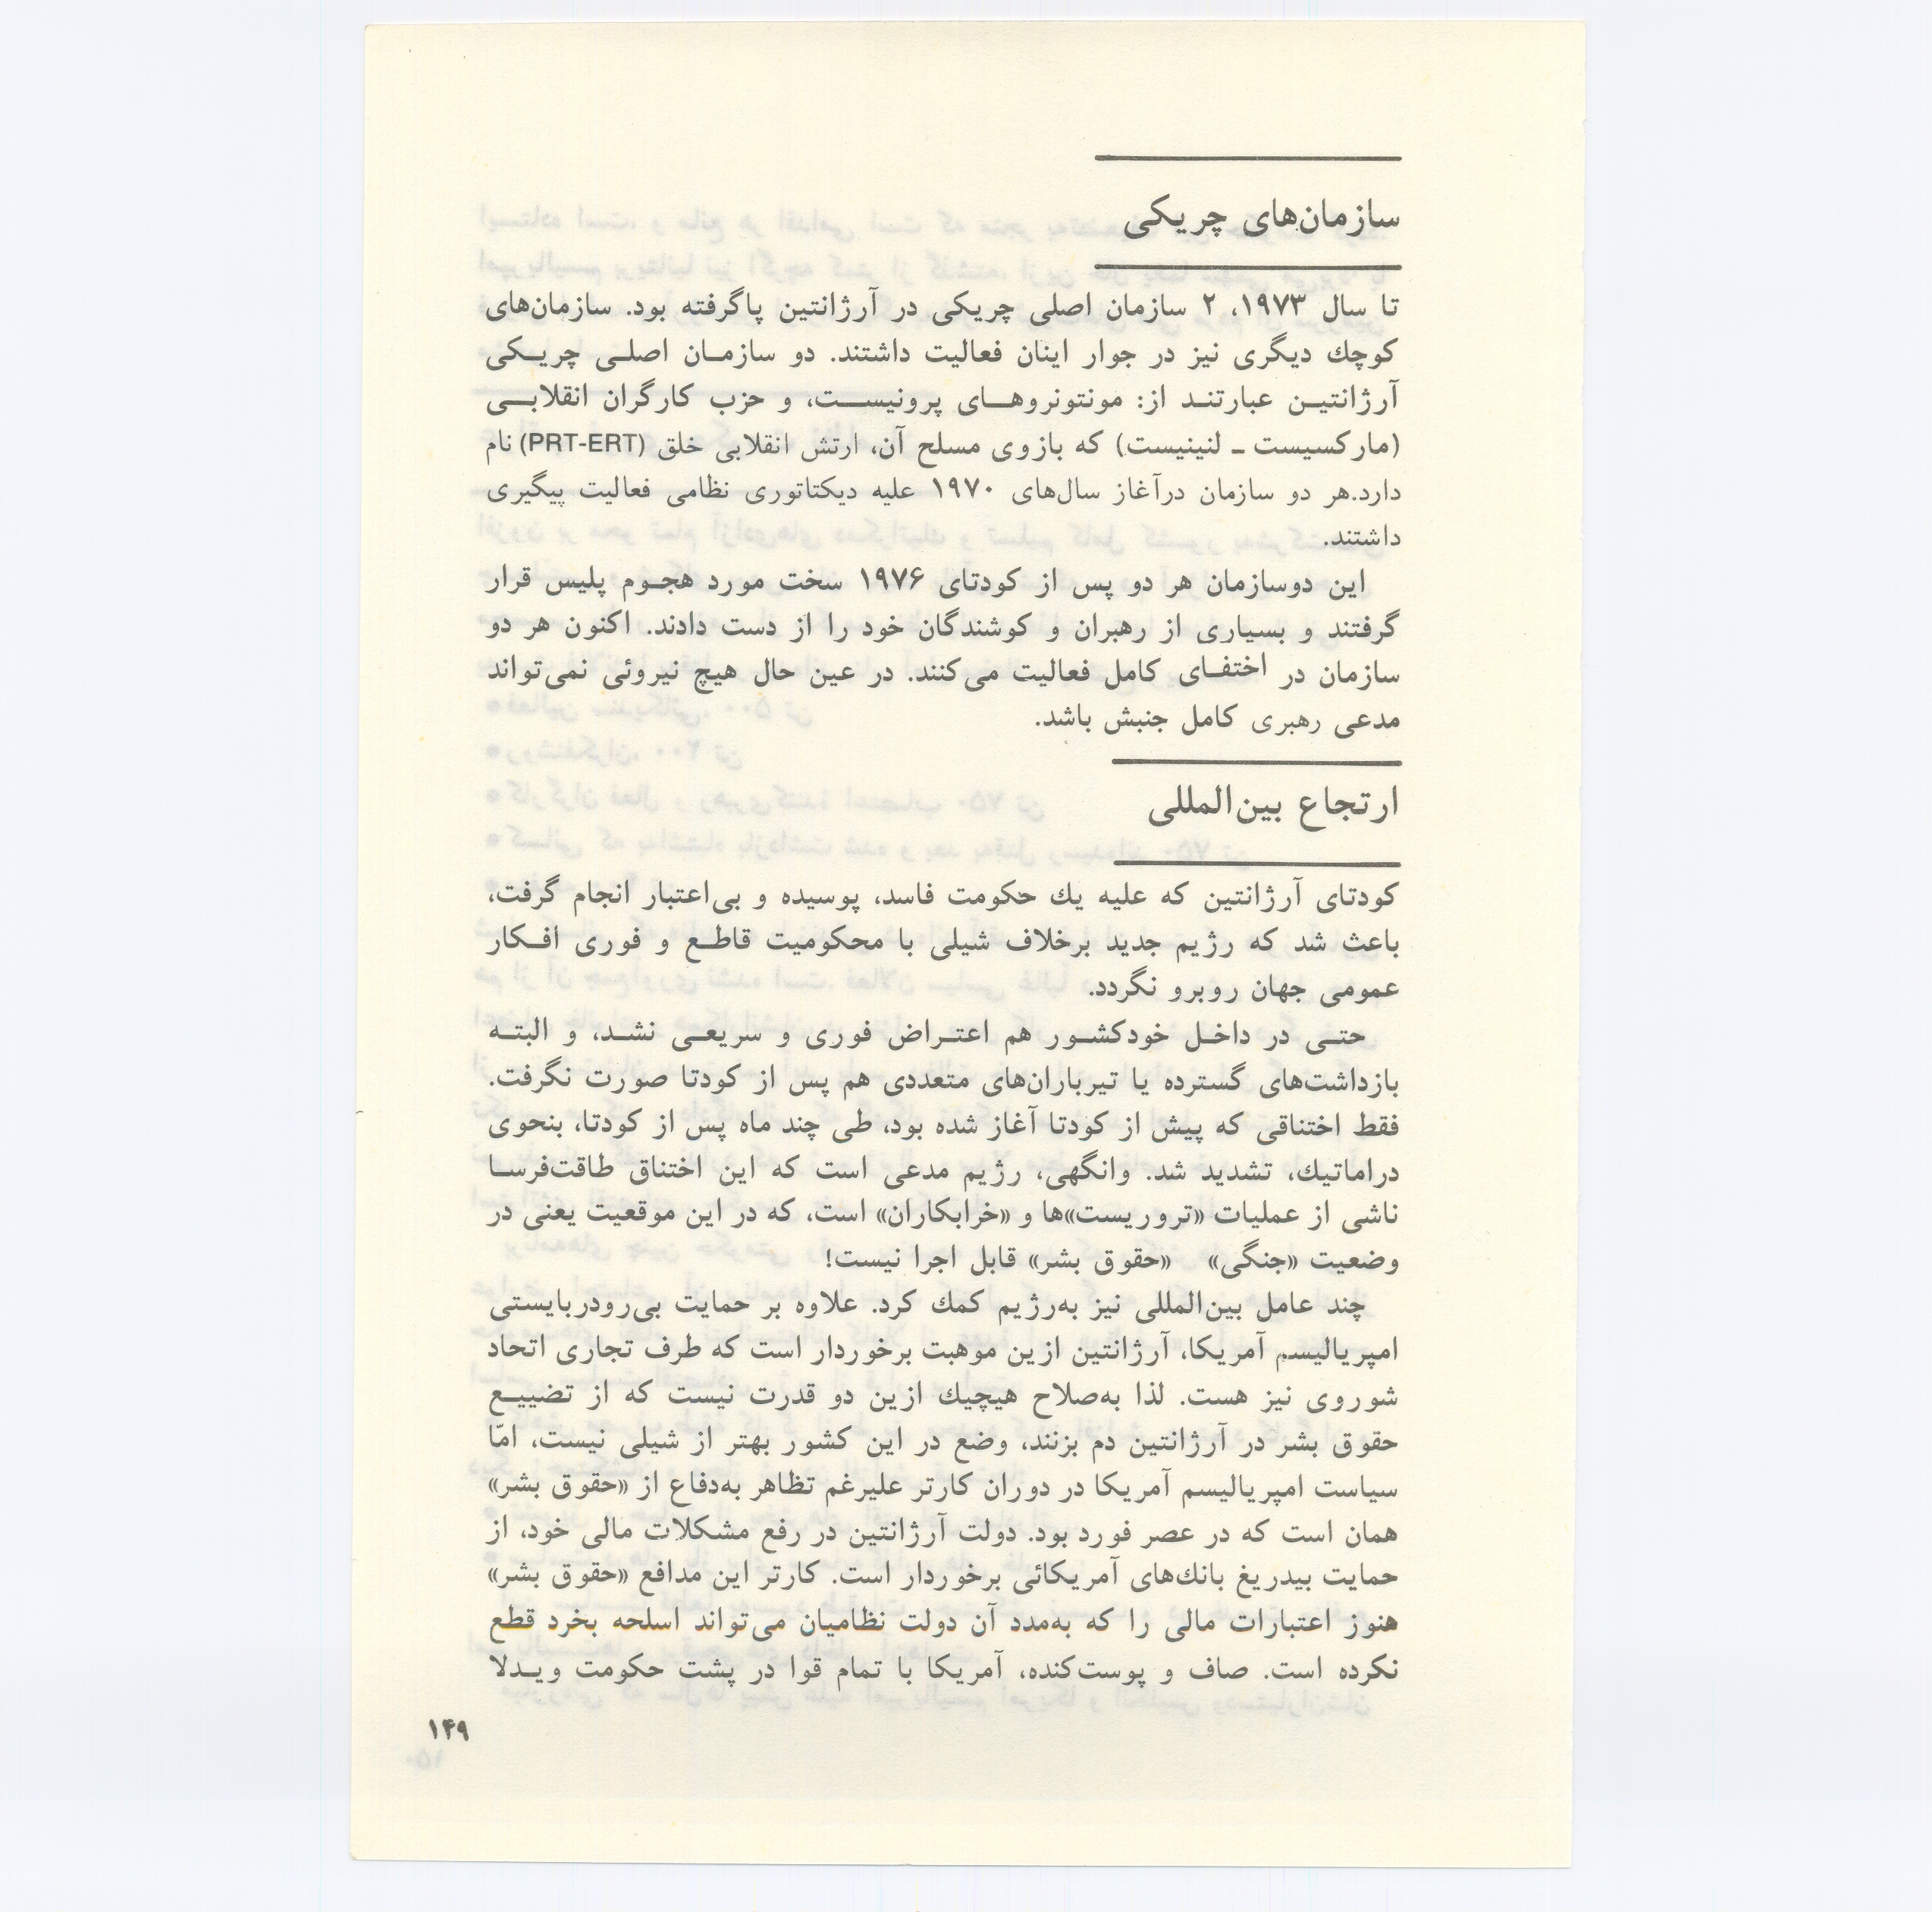 سازمان‌های چریکی
تا سال ۱۹۷۳، ۲ سازمان اصلی چریکی در آرژانتین پاگرفته بود. سازمان‌های
کوچك دیگری نیز در جوار اینان فعالیت داشتند. دو سازمـان اصلـی چریـکی
آرژانتیـن عبارتنـد از: مونتونروهـای پرونیسـت، و حزب کارگران انقلابـی
(مارکسیست ـ لنینیست) که بازوی مسلح آن، ارتش انقلابی خلق (PRT-ERT) نام
دارد.هر دو سازمان درآغاز سال‌های ۱۹۷۰ علیه دیکتاتوری نظامی فعالیت پیگیری
داشتند.
این دوسازمان هر دو پس از کودتای ۱۹۷۶ سخت مورد هجـوم پلیس قرار
گرفتند و بسیاری از رهبران و کوشندگان خود را از دست دادند. اکنون هر دو
سازمان در اختفـای کامل فعالیت می‌کنند. در عین حال هیچ نیروئی نمی‌تواند
مدعی رهبری کامل جنبش باشد.
ارتجاع بین‌المللی
کودتای آرژانتین که علیه یك حکومت فاسد، پوسیده و بی‌اعتبار انجام گرفت،
باعث شد که رژیم جدید برخلاف شیلی با محکومیت قاطـع و فوری افـکار
عمومی جهان روبرو نگردد.
حتـی در داخـل خودکشـور هم اعتـراض فوری و سریعـی نشـد، و البتـه
بازداشت‌های گسترده یا تیرباران‌های متعددی هم پس از کودتا صورت نگرفت.
فقط اختناقی که پیش از کودتا آغاز شده بود، طی چند ماه پس از کودتا، بنحوی
دراماتیك، تشدید شد. وانگهی، رژیم مدعی است که این اختناق طاقت‌فرسـا
ناشی از عملیات «تروریست»ها و «خرابکاران» است، که در این موقعیت یعنی در
وضعیت «جنگی» «حقوق بشر» قابل اجرا نیست!
چند عامل بین‌المللی نیز به‌رژیم کمك کرد. علاوه بر حمایت بی‌رودربایستی
امپریالیسم آمریکا، آرژانتین ازین موهبت برخوردار است که طرف تجاری اتحاد
شوروی نیز هست. لذا به‌صلاح هیچیك ازین دو قدرت نیست که از تضییـع
حقوق بشر در آرژانتین دم بزنند، وضع در این کشور بهتر از شیلی نیست، امّا
سیاست امپریالیسم آمریکا در دوران کارتر علیرغم تظاهر به‌دفاع از «حقوق بشر»
همان است که در عصر فورد بود. دولت آرژانتین در رفع مشکلات مالی خود، از
حمایت بیدریغ بانك‌های آمریکائی برخوردار است. کارتر این مدافع «حقوق بشر»
هنوز اعتبارات مالی را که به‌مدد آن دولت نظامیان می‌تواند اسلحه بخرد قطع
نکرده است. صاف و پوست‌کنده، آمریکا با تمام قوا در پشت حکومت ویـدلا
۱۴۹